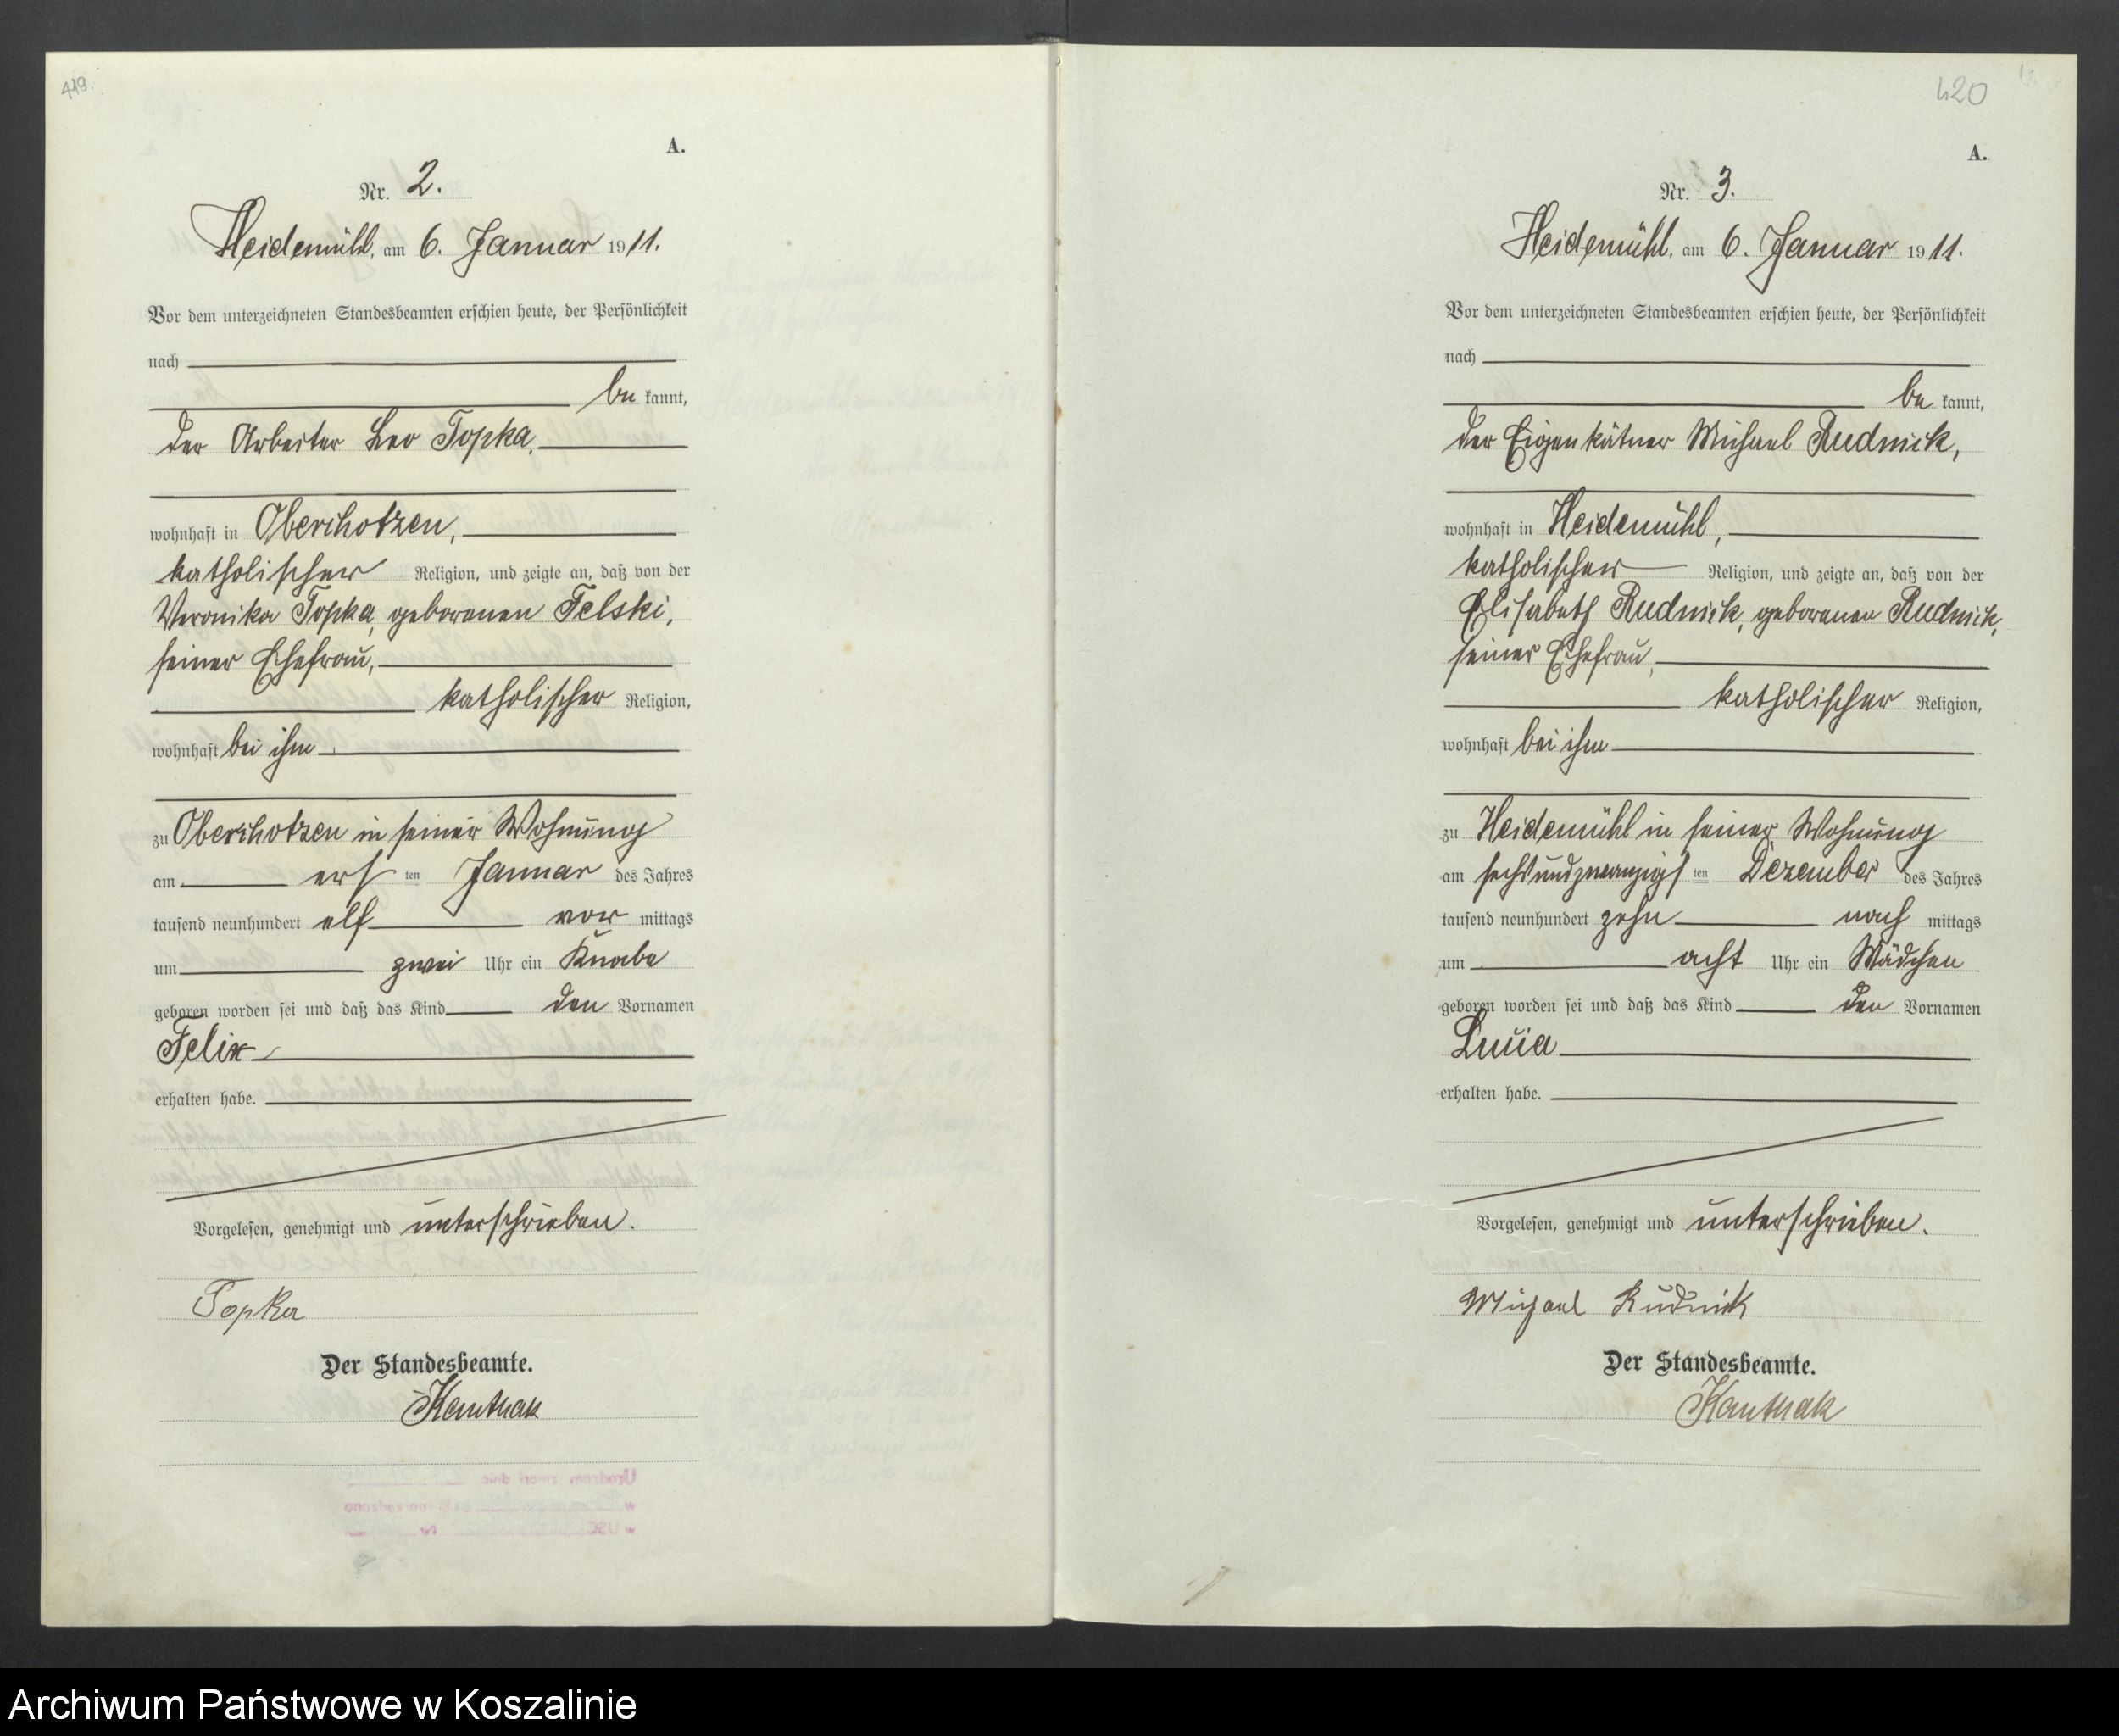 419.
A.
Nr. 2.
Heidemühl, am 6. Januar 1911.
Vor dem unterzeichneten Standesbeamten erschien heute, der Persönlichkeit
nach
be kannt,
der Arbeiter Leo Topka,
wohnhaft in Oberchotzen,
katholischer Religion, und zeigte an, daß von der
Veronika Topka, geborenen Felski,
seiner Ehefrau,
katholischer Religion,
wohnhaft bei ihm
zu Oberchotzen in seiner Wohnung
am erst ten Januar des Jahres
tausend neunhundert elf vor mittags
um zwei Uhr ein Knabe
geboren worden sei und daß das Kind den Vornamen
Felix
erhalten habe.
Vorgelesen, genehmigt und unterschrieben.
Topka
Der Standesbeamte.
Kanthak
420
A.
Nr. 3.
Heidemühl, am 6. Januar 1911.
Vor dem unterzeichneten Standesbeamten erschien heute, der Persönlichkeit
nach
be kannt,
der Eigenkätner Michael Rudnick,
wohnhaft in Heidemühl,
katholischer Religion, und zeigte an, daß von der
Elisabeth Rudnick, geborenen Rudnick,
seiner Ehefrau,
katholischer Religion,
wohnhaft bei ihm
zu Heidemühl in seiner Wohnung
am sechsundzwanzigs ten Dezember des Jahres
tausend neunhundert zehn nach mittags
um acht Uhr ein Mädchen
geboren worden sei und daß das Kind den Vornamen
Lucia
erhalten habe.
Vorgelesen, genehmigt und unterschrieben.
Michael Rudnick
Der Standesbeamte.
Kanthak
Archiwum Państwowe w Koszalinie